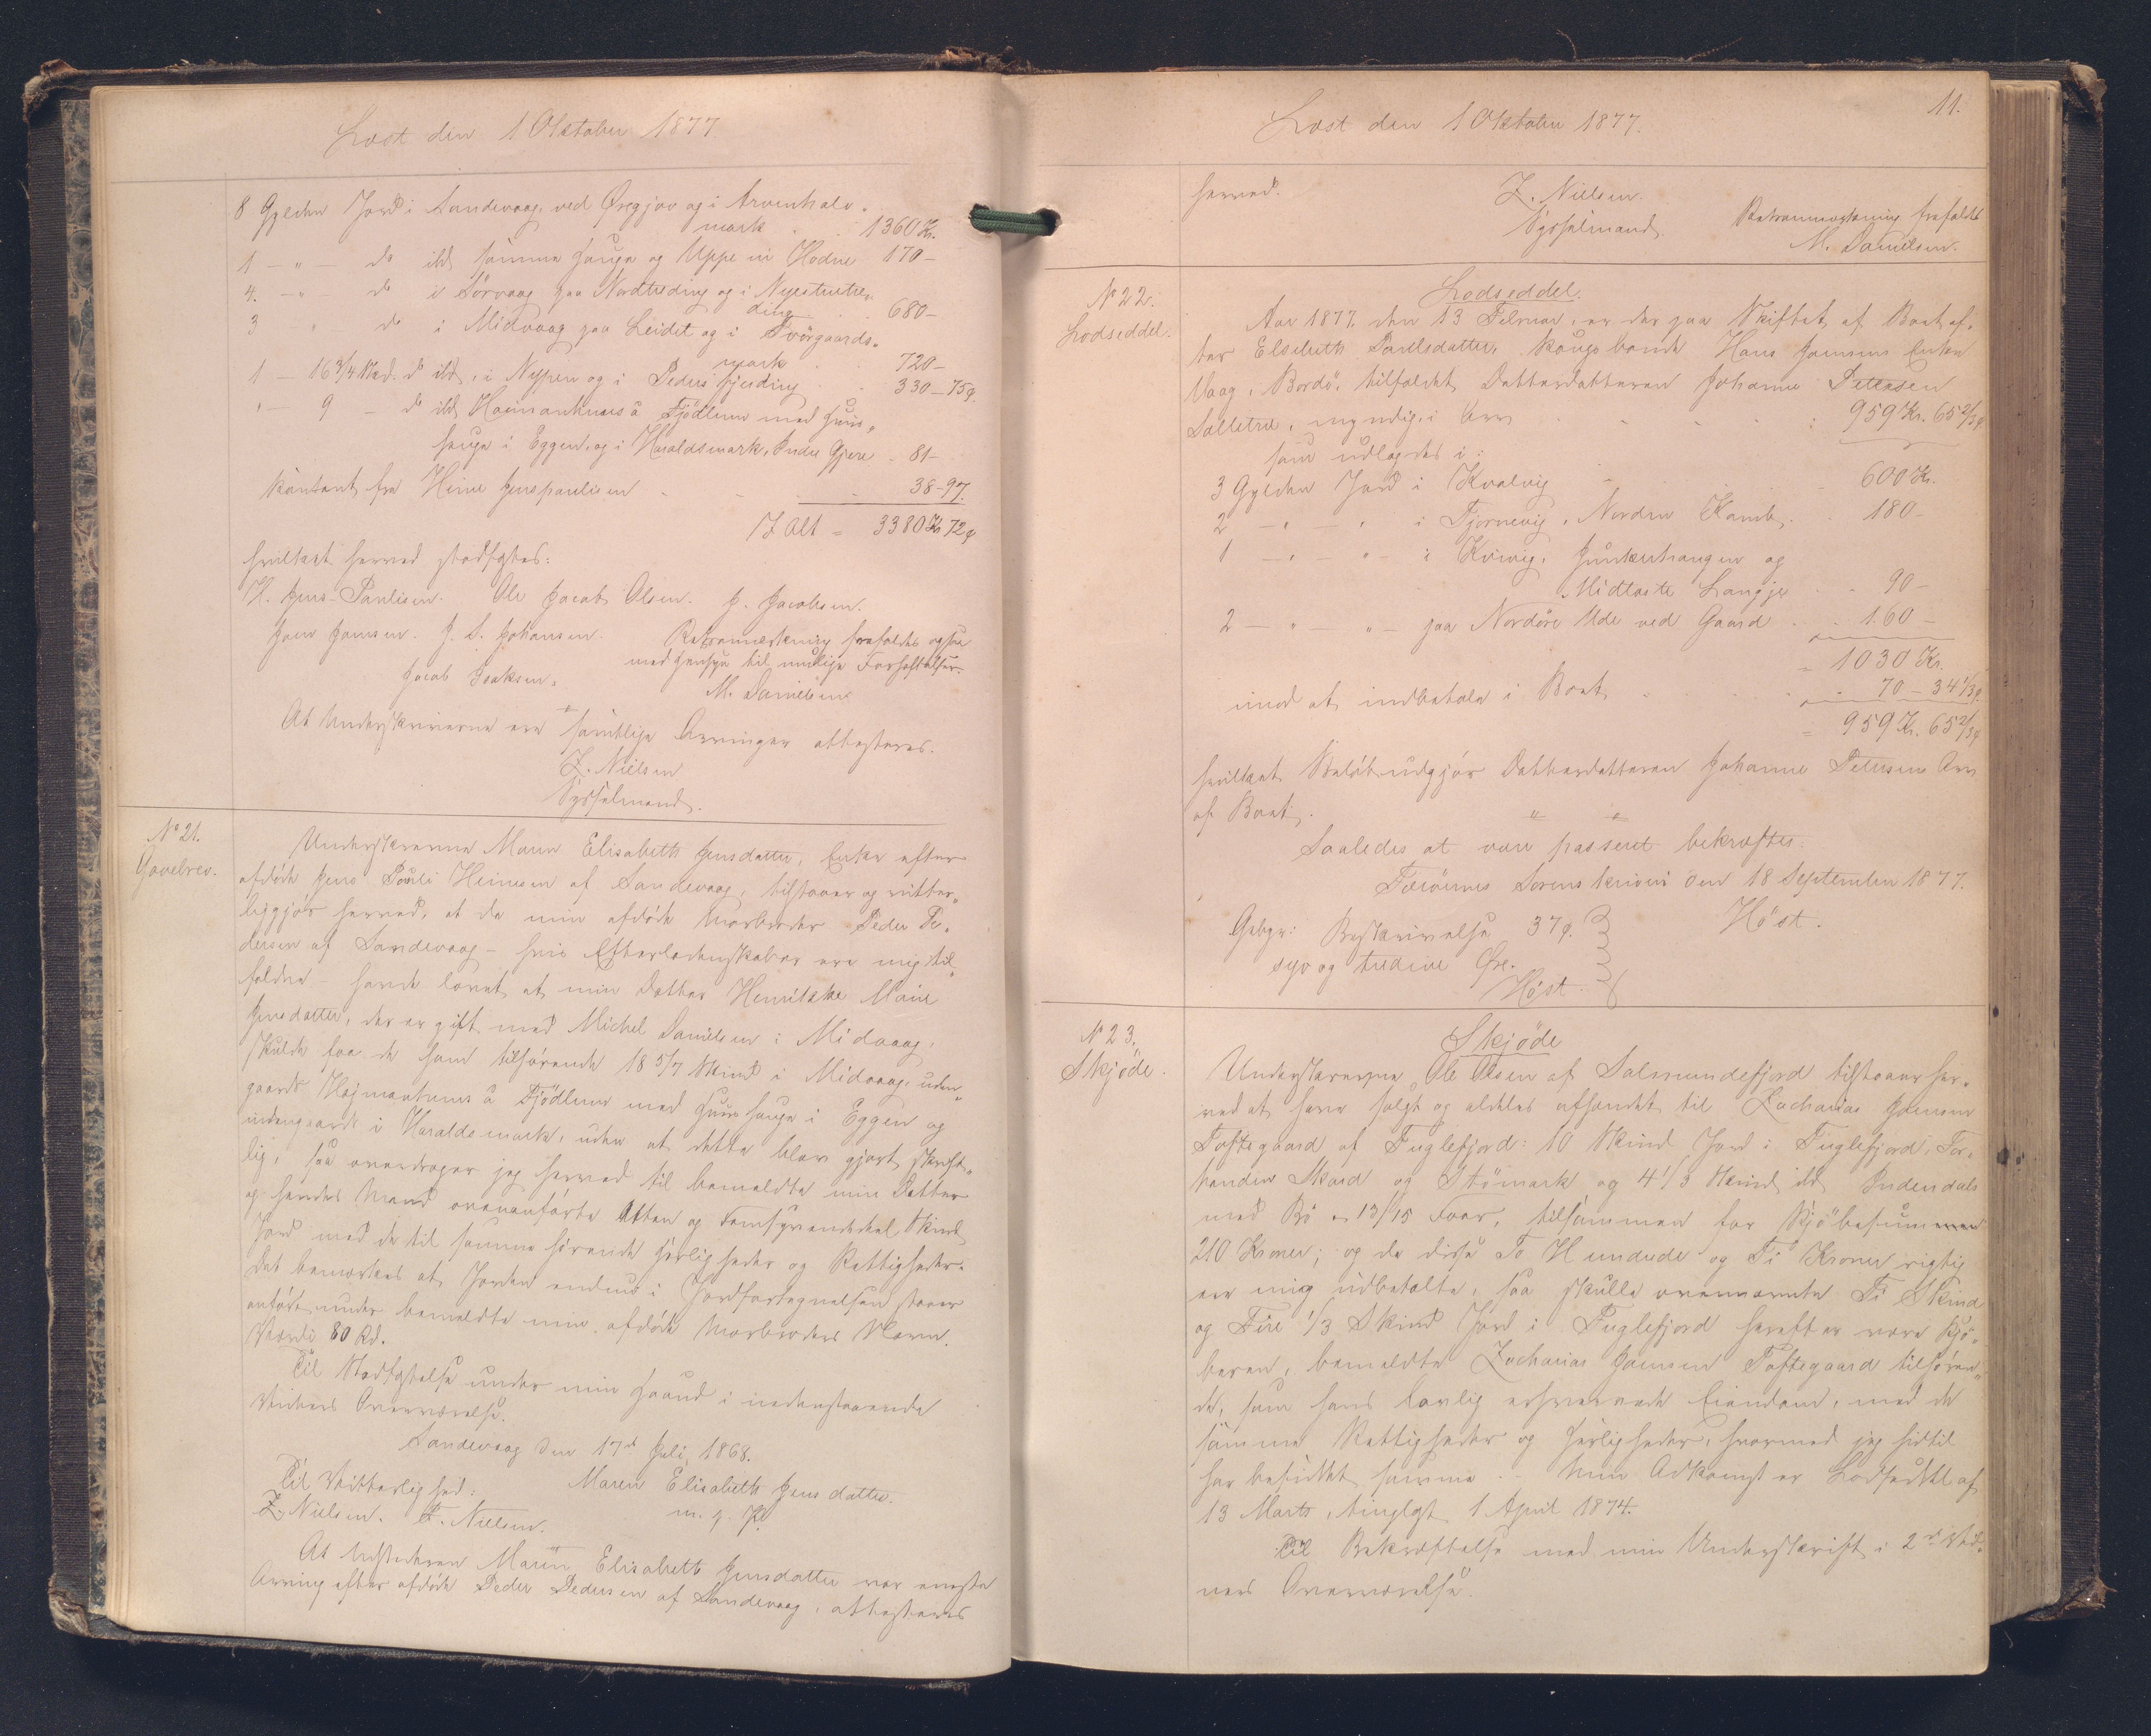 Læst den 1 Oktober 1877.
8 Gylden Jord i Sandevaag, ved Øregjov og i Arvenhalv-
mark 1360 Kr.
1 — " — do ibd samme Hauge og Uppe in Hodne 170 —
4. — " — do i Sörvaag paa Nordtreding og i Nyestuetre-
ding 680 —
3 " do i Midvaag paa Leidet og i Frörgaards-
mark 720 —
1 — 16 3/4 Skd. do ibd, i Nyppen og i Peders Fjerding 330 — 75 ø.
" — 9 — do ibd Heimanhuus à Fjödlum med Huus-
hauge i Eggen, og i Haraldsmark, Indre Gjere 81 —
Kontant fra Heine Jenspaulisen 38 — 97.
I Alt = 3380 Kr 72 ø
hvilket herved stadfæstes:
H. Jens-Paulisen. Ole Jacob Olsen. J. Jacobsen.
Jens Joensen. J. S. Johansen. Retsanmærkning frafaldes ogsaa
Jacob Isaksen. med Hensyn til mulige Forhæftelser.
M. Danielsen
At Underskriverne ere samtlige Arvinger attesteres.
Z. Nielsen
Sysselmand.
No 21.
Gavebrev.
Underskrevne Maren Elisabeth Jensdatter, Enke efter
afdöde Jens Pauli Heinesen af Sandevaag, tilstaaer og vitter-
liggjör herved, at da min afdöde Morbroder Peder Pe-
dersen af Sandevaag — hvis Efterladenskaber ere mig til-
faldne — havde lovet at min Datter Henrikke Marie
Jensdatter, der er gift med Michel Danielsen i Midvaag,
skulde faa de ham tilhörende 18 5/7 Skind i Midvaag, uden-
gaards Hejmanhuus à Fjödlum med Huushauge i Eggen og
indengaards i Haraldsmark, uden at dette blev gjort skrift-
lig, saa overdrager jeg herved til bemeldte min Datter
og hendes Mand ovenanförte Atten og Femsyvendedeel Skind
Jord med de til samme hörende Herligheder og Rettigheder.
Det bemærkes at Jorden endnu i Jordfortegnelsen staaer
anfört under bemeldte min afdöde Morbroders Navn.
Værdi 80 Rd.
Til Stadfæstelse under min Haand i nedenstaaende
Vidners Overværelse.
Sandevaag den 17de Juli 1868.
Til Vitterlighed: Maren Elisabeth Jensdatter.
Z. Nielsen. F. Nielsen. m. f. P.
At Udstederen Maren Elisabeth Jensdatter var eneste
Arving efter afdöde Peder Pedersen af Sandevaag, attesteres
Læst den 1 Oktober 1877.
11.
herved. Z. Nielsen.
Sysselmand. Retsanmærkning frafaldes
M. Danielsen.
No 22.
Lodseddel.
Lodseddel.
Aar 1877, den 13 Februar, er der paa Skiftet af Boet ef-
ter Elsebeth Poulsdatter, Kongsbonde Hans Joensens Enke
Vaag, Bordö, tilfaldet Datterdatteren Johanne Petersen
Salletræ, myndig, i Arv 959 Kr. 65 2/3 ø
som udlagdes i:
3 Gylden Jord i Kvalvig 600 Kr.
2 — " — " i Tjörnevig, Norden Kamb. 180 —
1 — " — " — i Kvivig, Huntærhaugen og
Midtoste Langje 90 —
2 — " — " — paa Nordöre Ude ved Gaard 160 —
= 1030 Kr.
imod at indbetale i Boet 70 — 34 1/3 ø
= 959 Kr. 65 2/3 ø
hvilket Belöb udgjör Datterdatteren Johanne Petersens Arv
af Boet.
Saaledes at være passeret bekræftes.
Færöernes Sorenskriveri den 18 September 1877.
Gebyr: Beskrivelse 37 ø. Höst.
syv og tredive Øre.
Höst.
No 23.
Skjöde.
Skjöde
Underskrevne Ole Olsen af Salmundefjord tilstaaer her-
ved at have solgt og aldeles afhændet til Zacharias Joensen
Toftegaard af Fuglefjord: 10 Skind Jord i Fuglefjord, For-
handen Skard og Stömark og 4 1/3 Skind ibd Indendals
med Bö a 13/15 Foer, tilsammen for Kjöbesummen
210 Kroner; og da disse To Hundrede og Ti Kroner rigtig
ere mig udbetalte, saa skulle ovennævnte Ti Skind
og Fire 1/3 Skind Jord i Fuglefjord herefter være Kjö-
beren, bemeldte Zacharias Joensen Toftegaard tilhören-
de, som hans lovlig erhvervede Eiendom, med de
samme Rettigheder og Herligheder, hvormed jeg hidtil
har besiddet samme. — Min Adkomst er Lodseddel af
13 Marts, tinglyst 1 April 1874.
Til Bekræftelse med min Underskrift i 2de Vid-
ners Overværelse.